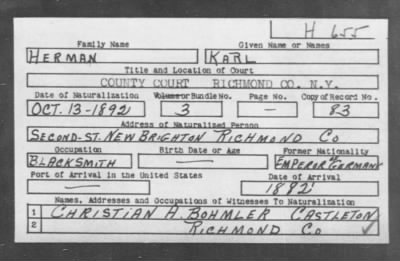 H 655
Family Name Given Name or Names
HERMAN KARL
Title and Location of Court
COUNTY COURT RICHMOND CO. N.Y.
Date of Naturalization Volume or Bundle No. Page No. Copy of Record No.
OCT. 13-1892 3 — 83
Address of Naturalized Person
SECOND-ST. NEW BRIGHTON RICHMOND CO
Occupation Birth Date or Age Former Nationality
BLACKSMITH — EMPEROR GERMANY
Port of Arrival in the United States Date of Arrival
— 1882
Names, Addresses and Occupations of Witnesses To Naturalization
1 CHRISTIAN A. BOHMLER CASTLETON
2 RICHMOND CO